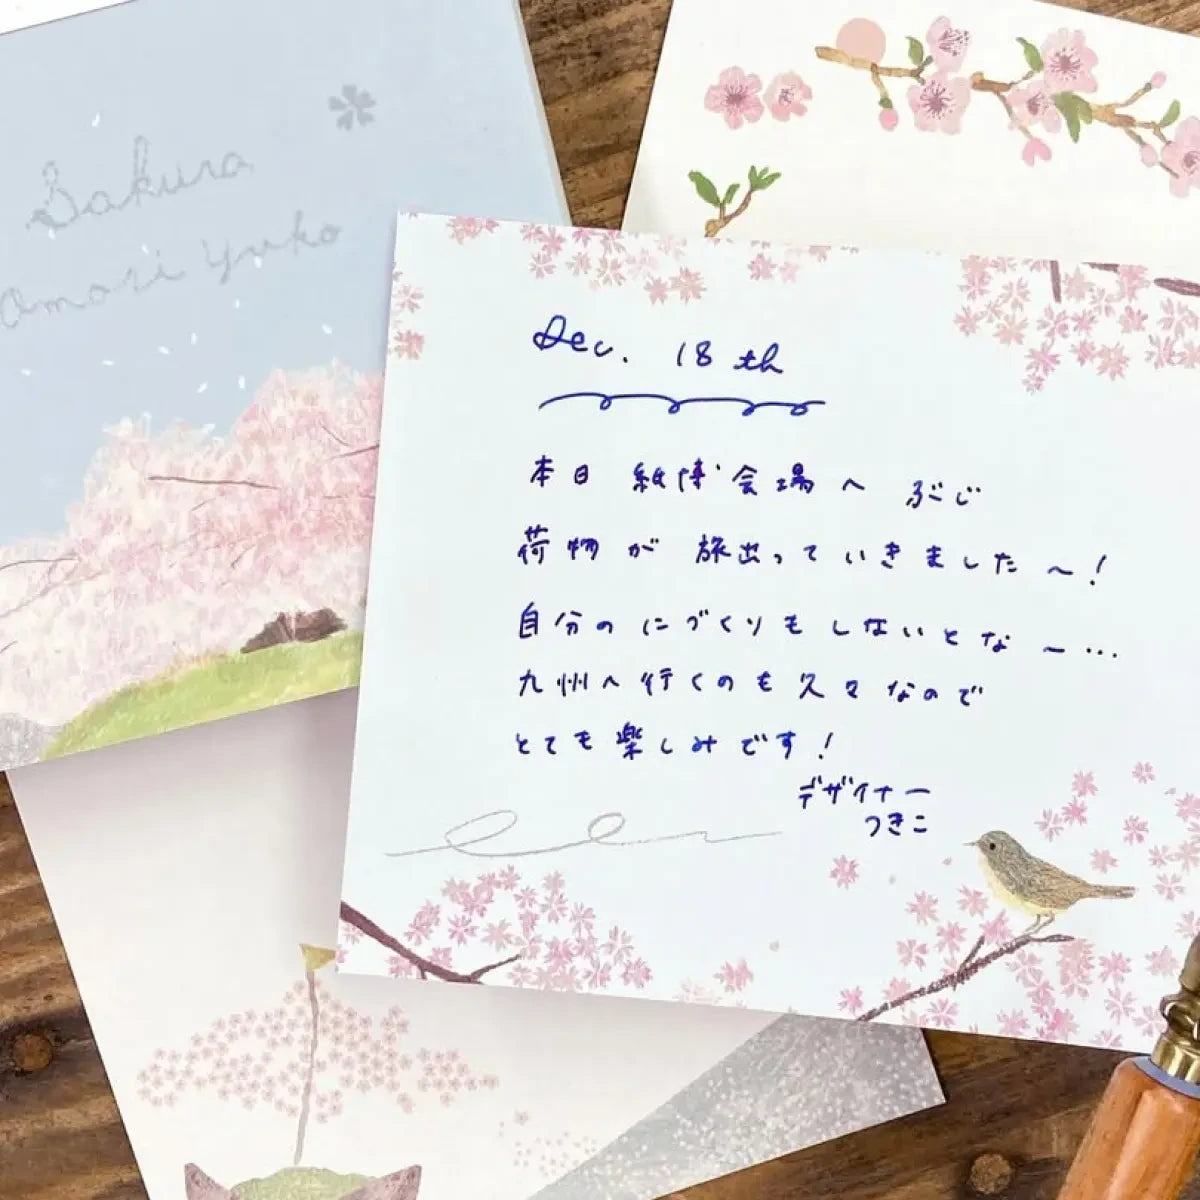 Sakura
Omori Yuko
Dec. 18th
本日 紙博 会場へ ぶじ
荷物が 旅出っていきました〜!
自分のにづくりもしないとな〜…
九州へ行くのも久々なので
とても楽しみです!
デザイナー
つきこ